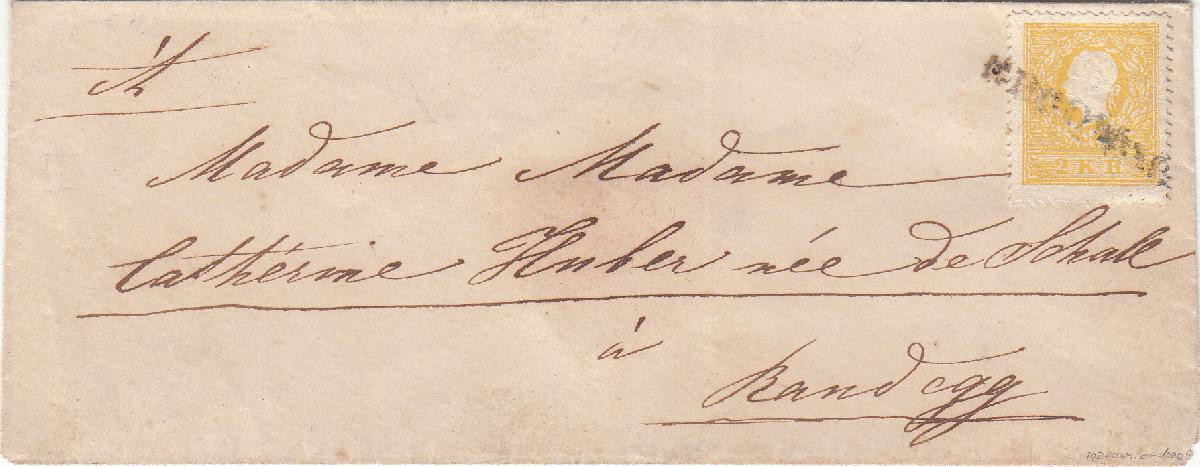 À
Madame Madame
Cathérine Huber née de Schall
à
Randegg
2 KR